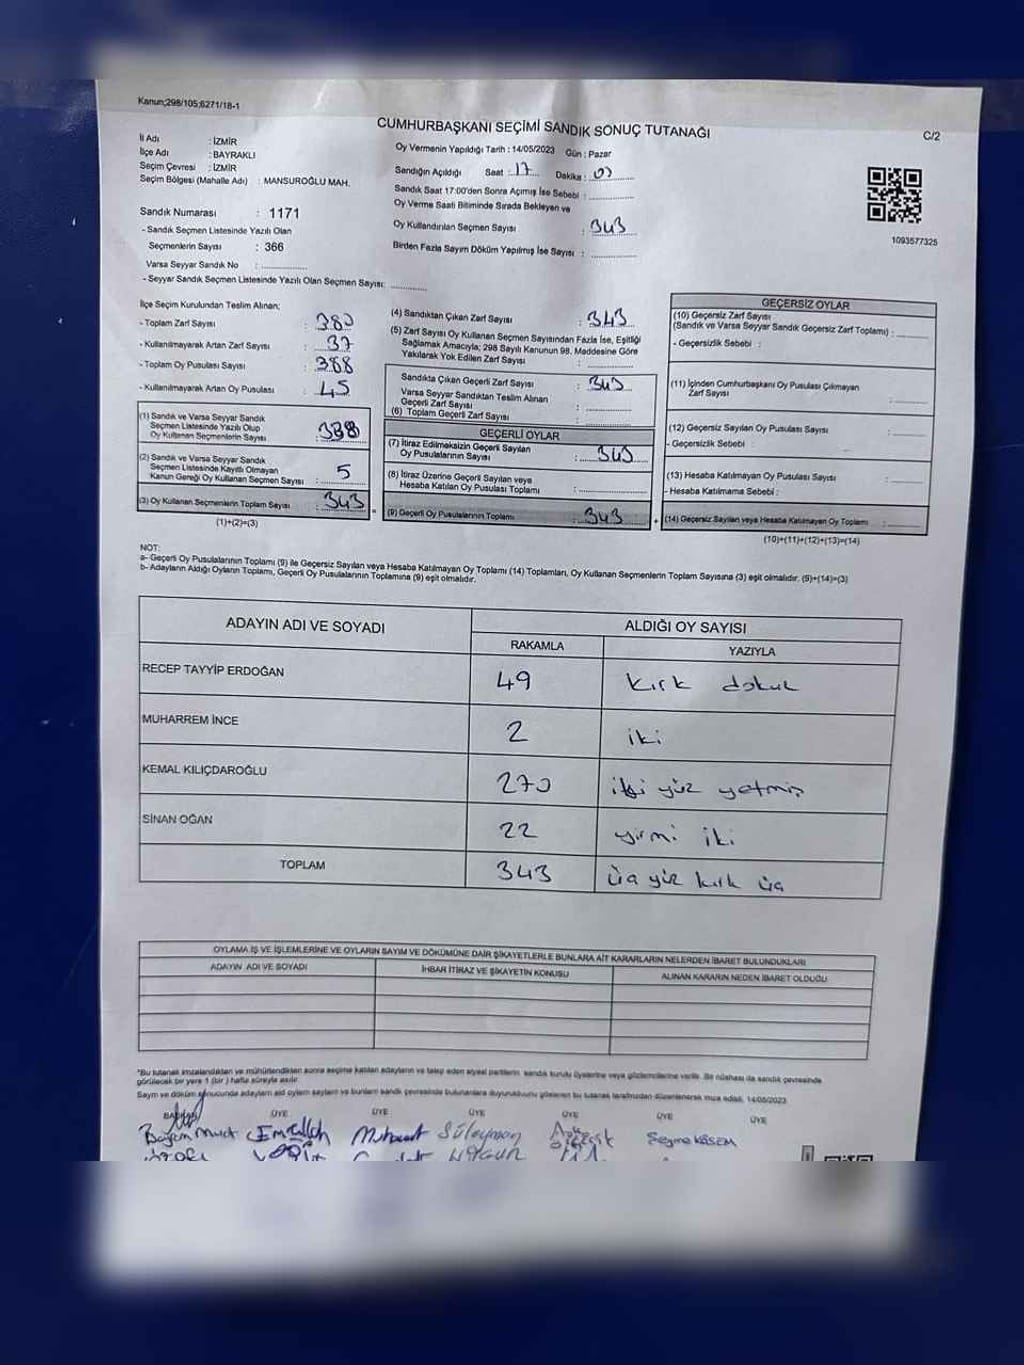 Kanun;298/105;6271/18-1
CUMHURBAŞKANI SEÇİMİ SANDIK SONUÇ TUTANAĞI
C/2
İl Adı : İZMİR
İlçe Adı : BAYRAKLI
Seçim Çevresi : İZMİR
Seçim Bölgesi (Mahalle Adı) : MANSUROĞLU MAH.
Sandık Numarası : 1171
- Sandık Seçmen Listesinde Yazılı Olan
Seçmenlerin Sayısı : 366
Varsa Seyyar Sandık No :
- Seyyar Sandık Seçmen Listesinde Yazılı Olan Seçmen Sayısı:
Oy Vermenin Yapıldığı Tarih : 14/05/2023 Gün : Pazar
Sandığın Açıldığı Saat : 17 Dakika :
Sandık Saat 17:00'den Sonra Açımış İse Sebebi :
Oy Verme Saati Bitiminde Sırada Bekleyen ve
Oy Kullandırılan Seçmen Sayısı : 343
Birden Fazla Sayım Döküm Yapılmış İse Sayısı :
1093577325
İlçe Seçim Kurulundan Teslim Alınan;
- Toplam Zarf Sayısı : 380
- Kullanılmayarak Artan Zarf Sayısı : 37
- Toplam Oy Pusulası Sayısı : 388
- Kullanılmayarak Artan Oy Pusulası : 45
(1) Sandık ve Varsa Seyyar Sandık
Seçmen Listesinde Yazılı Olup
Oy Kullanan Seçmenlerin Sayısı : 338
(2) Sandık ve Varsa Seyyar Sandık
Seçmen Listesinde Kayıtlı Olmayan
Kanun Gereği Oy Kullanan Seçmen Sayısı : 5
(3) Oy Kullanan Seçmenlerin Toplam Sayısı : 343
(1)+(2)=(3)
(4) Sandıktan Çıkan Zarf Sayısı : 343
(5) Zarf Sayısı Oy Kullanan Seçmen Sayısından Fazla İse, Eşitliği
Sağlamak Amacıyla; 298 Sayılı Kanunun 98. Maddesine Göre
Yakılarak Yok Edilen Zarf Sayısı :
Sandıkta Çıkan Geçerli Zarf Sayısı : 343
Varsa Seyyar Sandıktan Teslim Alınan
Geçerli Zarf Sayısı :
(6) Toplam Geçerli Zarf Sayısı :
GEÇERLİ OYLAR
(7) İtiraz Edilmeksizin Geçerli Sayılan
Oy Pusulalarının Sayısı : 343
(8) İtiraz Üzerine Geçerli Sayılan veya
Hesaba Katılan Oy Pusulası Toplamı :
(9) Geçerli Oy Pusulalarının Toplamı : 343
GEÇERSİZ OYLAR
(10) Geçersiz Zarf Sayısı
(Sandık ve Varsa Seyyar Sandık Geçersiz Zarf Toplamı) :
- Geçersizlik Sebebi :
(11) İçinden Cumhurbaşkanı Oy Pusulası Çıkmayan
Zarf Sayısı :
(12) Geçersiz Sayılan Oy Pusulası Sayısı :
- Geçersizlik Sebebi :
(13) Hesaba Katılmayan Oy Pusulası Sayısı :
- Hesaba Katılmama Sebebi :
(14) Geçersiz Sayılan veya Hesaba Katılmayan Oy Toplamı :
(10)+(11)+(12)+(13)=(14)
NOT:
a- Geçerli Oy Pusulalarının Toplamı (9) ile Geçersiz Sayılan veya Hesaba Katılmayan Oy Toplamı (14) Toplamları, Oy Kullanan Seçmenlerin Toplam Sayısına (3) eşit olmalıdır. (9)+(14)=(3)
b- Adayların Aldığı Oyların Toplamı, Geçerli Oy Pusulalarının Toplamına (9) eşit olmalıdır.
ADAYIN ADI VE SOYADI ALDIĞI OY SAYISI
RAKAMLA YAZIYLA
RECEP TAYYİP ERDOĞAN 49 kırk dokuz
MUHARREM İNCE 2 iki
KEMAL KILIÇDAROĞLU 270 iki yüz yetmiş
SİNAN OĞAN 22 yirmi iki
TOPLAM 343 üç yüz kırk üç
OYLAMA İŞ VE İŞLEMLERİNE VE OYLARIN SAYIM VE DÖKÜMÜNE DAİR ŞİKAYETLERLE BUNLARA AİT KARARLARIN NELERDEN İBARET BULUNDUKLARI
ADAYIN ADI VE SOYADI İHBAR İTİRAZ VE ŞİKAYETİN KONUSU ALINAN KARARIN NEDEN İBARET OLDUĞU
*Bu tutanak imzalandıktan ve mühürlendikten sonra seçime katılan adayların ve talep eden siyasi partilerin sandık kurulu üyelerine veya gözlemcilerine verilir. Bir nüshası da sandık çevresinde
görülecek bir yere 1 (bir) hafta süreyle asılır.
ÜYE ÜYE ÜYE ÜYE ÜYE ÜYE
Süleyman